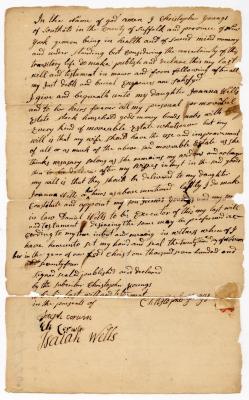 In the name of god amen I Christopher Youngs
of Southold in the County of Suffolk and province of New
York yeoman being in health and of sound mind memory
and understanding but considering the uncertainty of this
transitory life do make publish and declare this my last
will and testament in manner and form following first all
my Just debts and funeral Expences being satisfyed
I give and bequeath unto my daughter Joanna Wells
and to her heirs forever all my personal or moveable
Estate stock household goods money bonds with
Every kind of moveable Estate whatsoever but my
will is that my wife shall have the use and improvement
of all or as much of the above said moveable Estate as she
thinks necessary so long as she remains my widow and
my will is that they shall be delivered to my daughter
Joanna Wells as above mentioned lastly I do make
Constitute and appoint my son Youngs and my son
in law Daniel Wells to be Executors of this my last will
and testament desiring the same may be performed ac
cording to my true intent and meaning in witness whereof I
have hereunto set my hand and seal the
in the year of our Lord Christ one thousand seven hundred and
signed sealed published and declared
by the subscriber Christopher Youngs
to be his last will and testament
in the presents of
Christopher Youngs
Joseph Corwin
Eli Corwin
Isaiah Wells